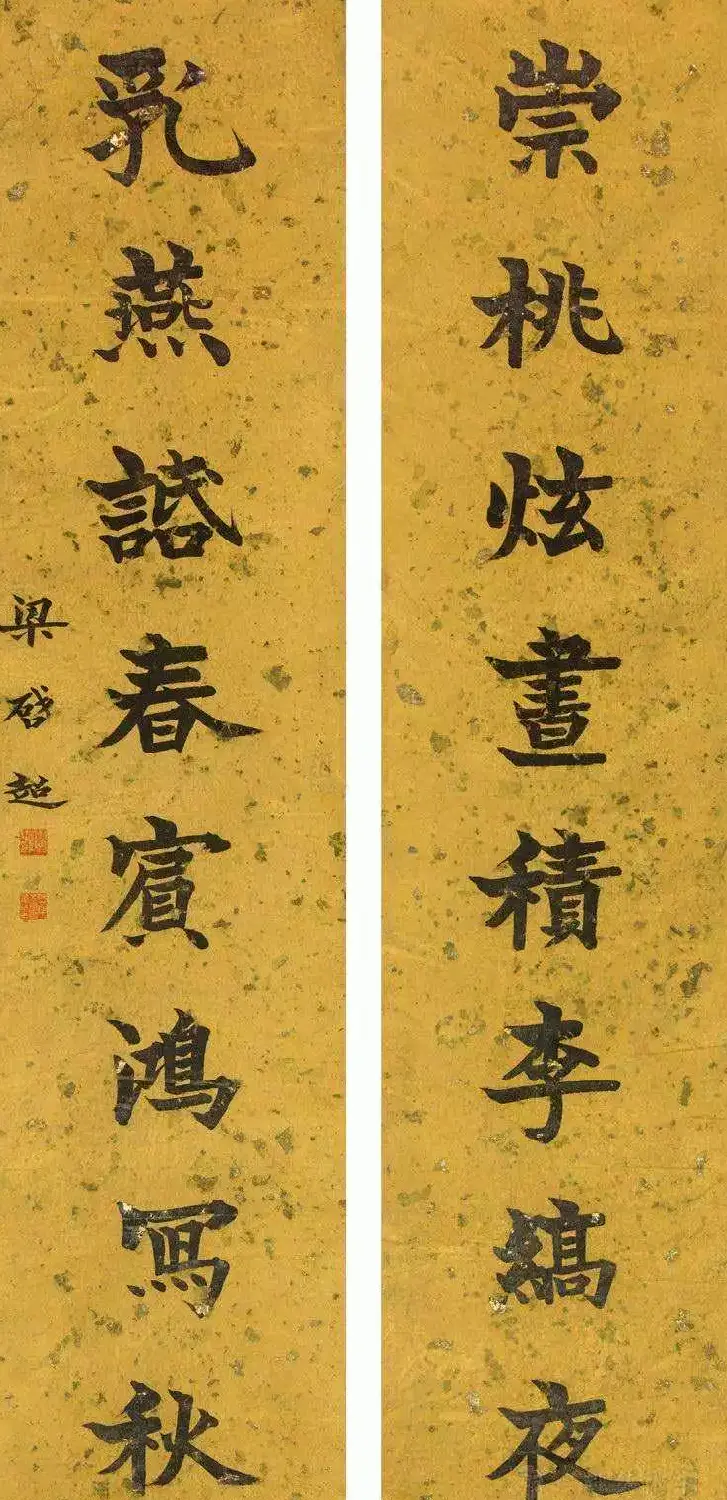 崇桃炫晝積李縞夜
乳燕話春賓鴻冩秋
梁啓超